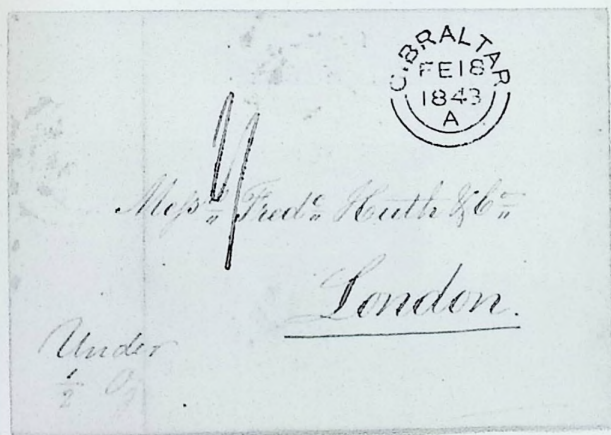 GIBRALTAR
FE 18
1843
A
1/
Messrs Fredc Huth & Co
London.
Under
1/2 Oz